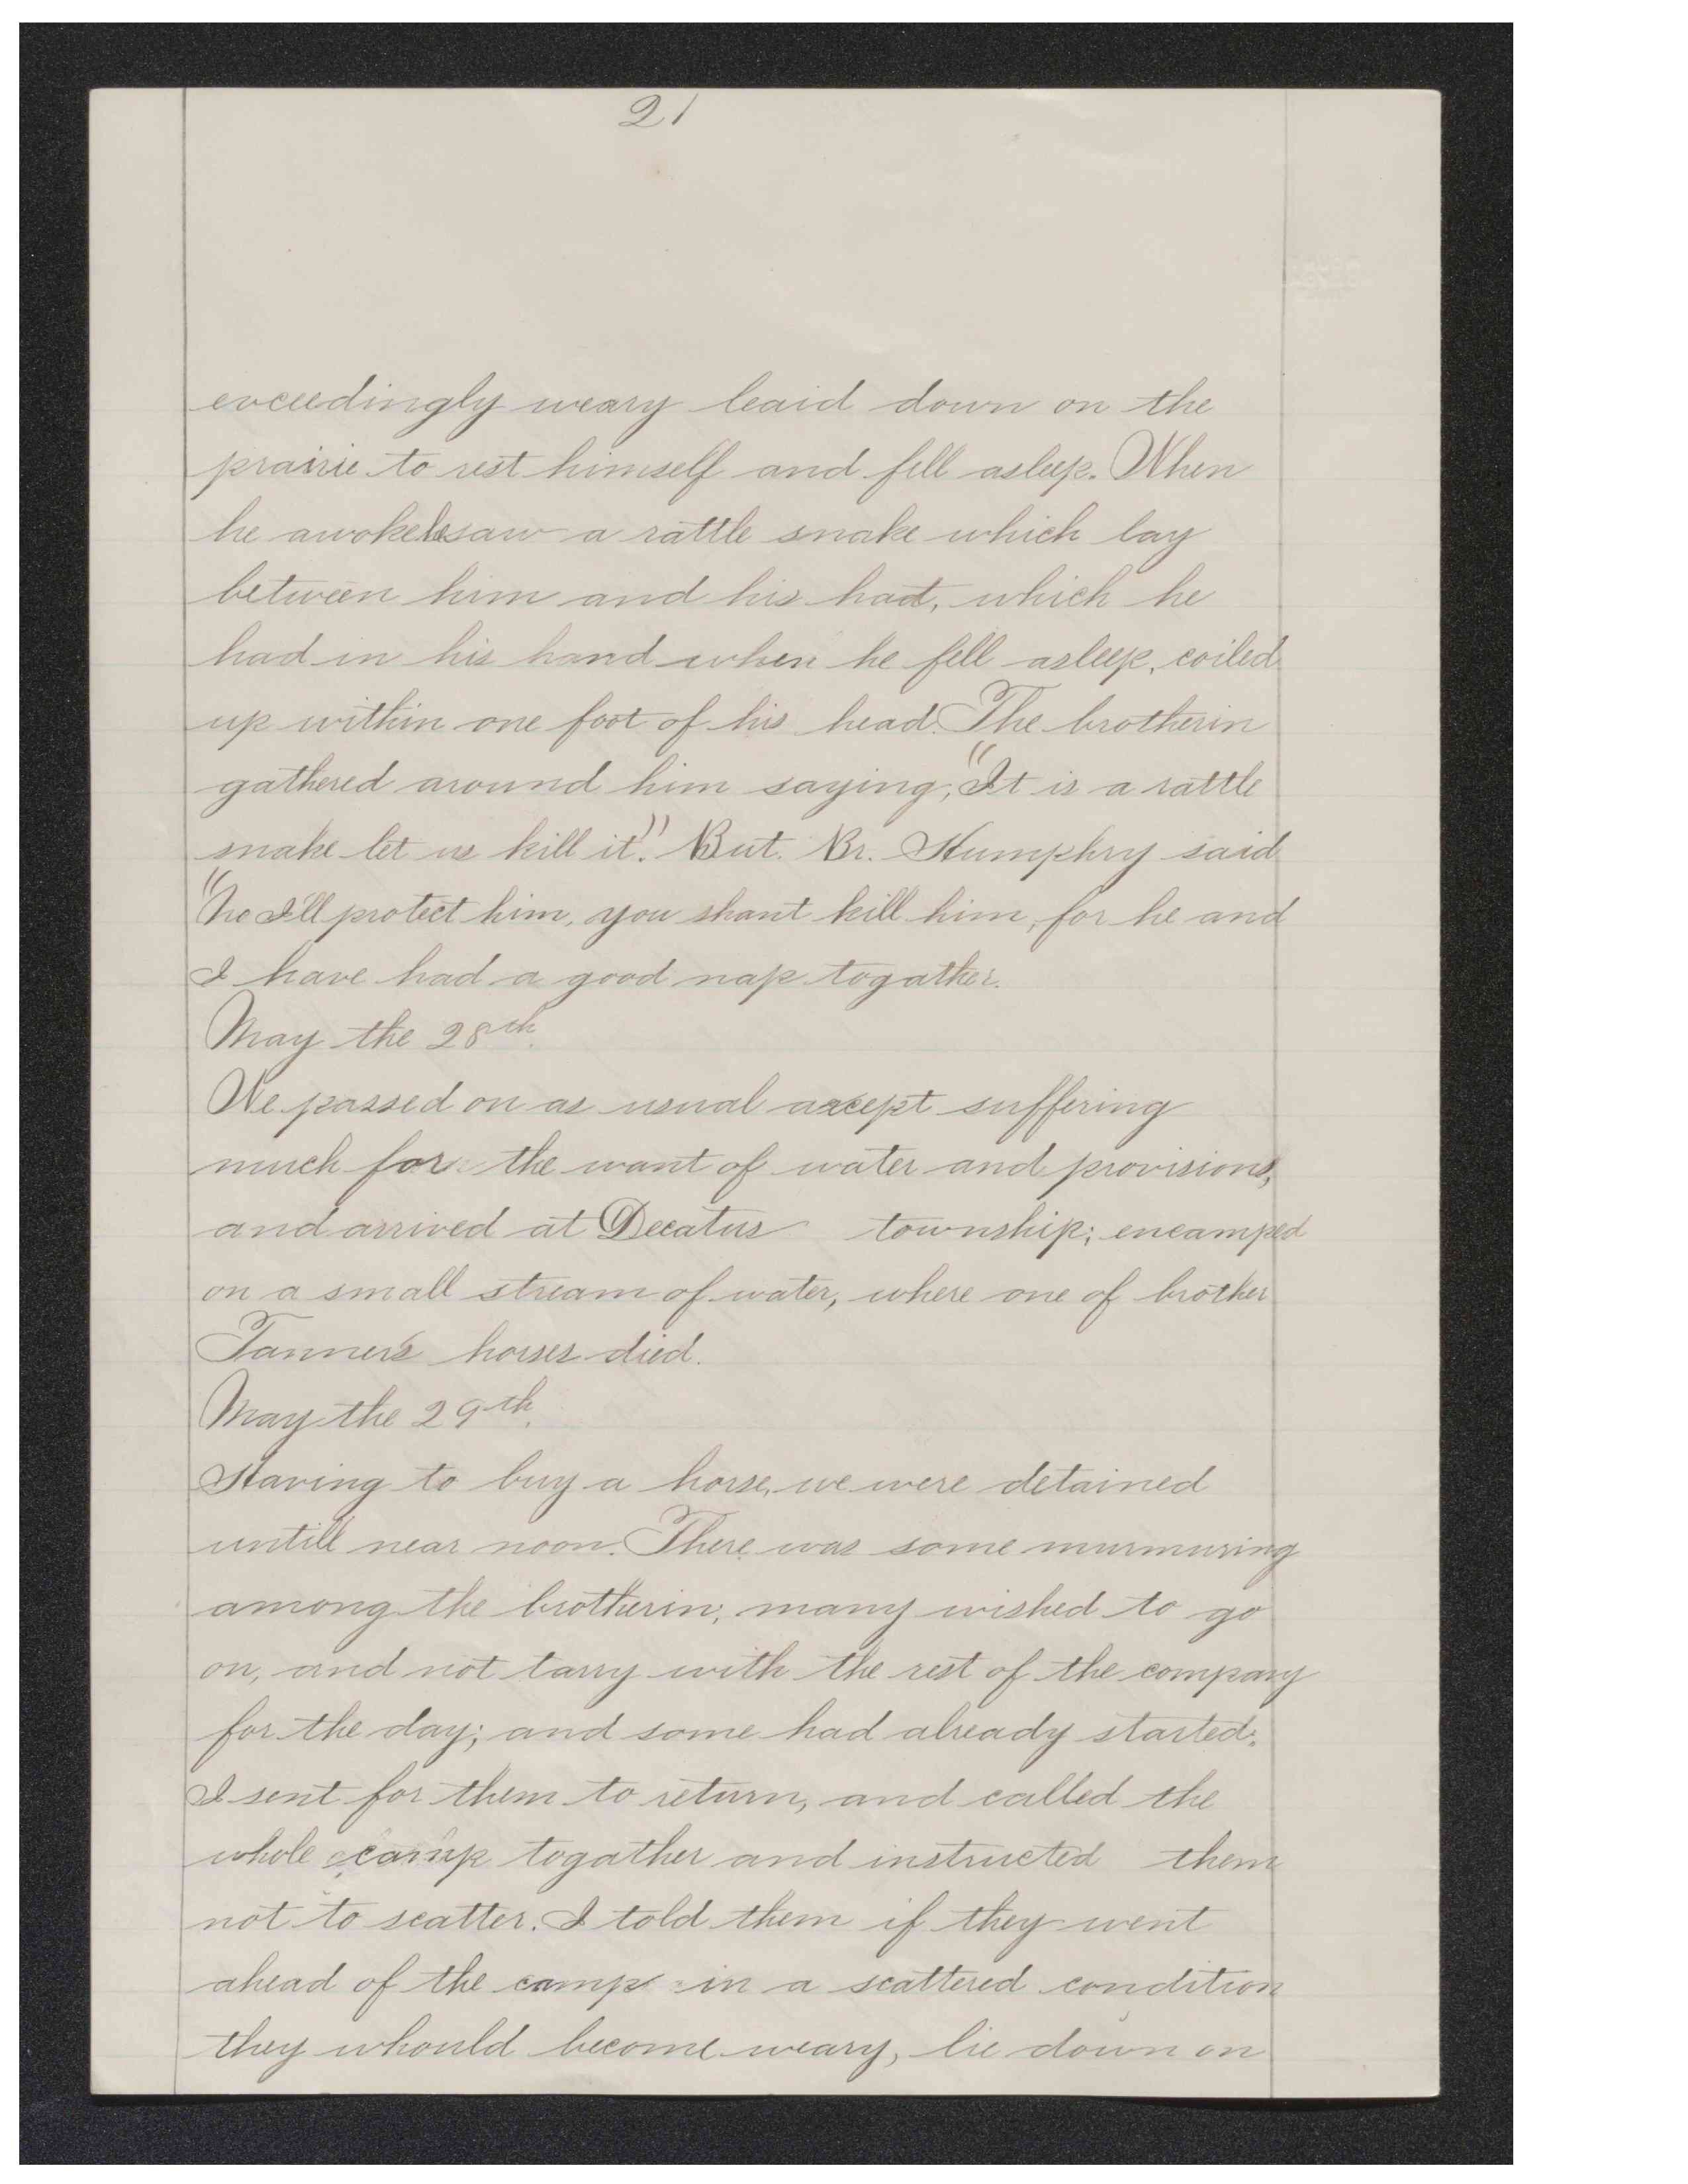 21
exceedingly weary leaid down on the
prairie to rest himself and fell asleep. When
he awoke he saw a rattle snake which lay
between him and his hat, which he
had in his hand when he fell asleep, coiled
up within one foot of his head. The brotherin
gathered around him saying, "It is a rattle
snake let us kill it." But Br. Humphry said
"No I'll protect him, you shant kill him, for he and
I have had a good nap togather.
May the 28th.
We passed on as usual axcept suffering
much for the want of water and provisions,
and arrived at Decatur township; encamped
on a small stream of water, where one of brother
Tanner's horses died.
May the 29th.
Having to buy a horse, we were detained
untill near noon. There was some murmuring
among the brotherin; many wished to go
on, and not tarry with the rest of the company
for the day; and some had already started.
I sent for them to return, and called the
whole camp togather and instructed them
not to scatter. I told them if they went
ahead of the camp in a scattered condition
they whould become weary, lie down on